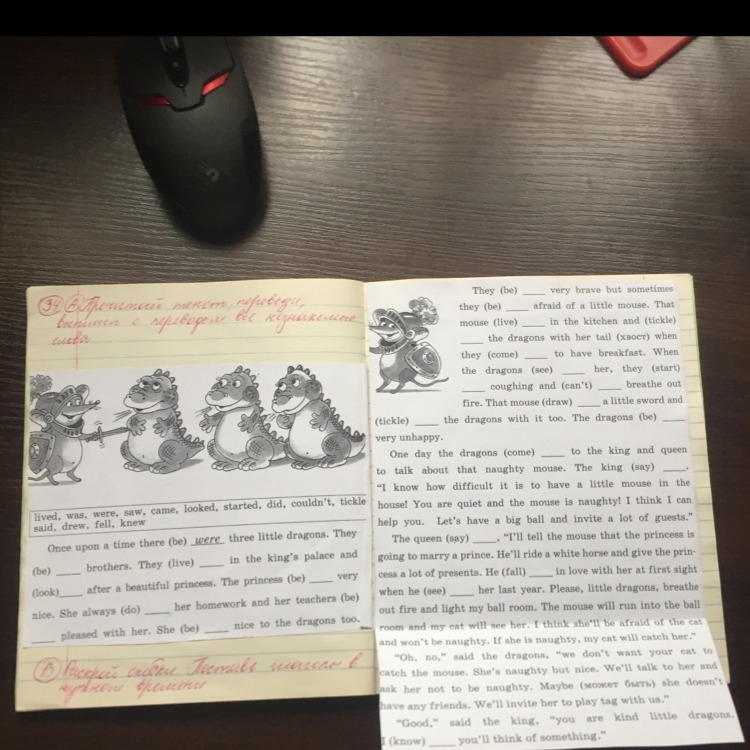 34 А Прочитай текст, переведи,
выпиши с переводом все незнакомые
слова
lived, was, were, saw, came, looked, started, did, couldn't, tickle
said, drew, fell, knew
Once upon a time there (be) were three little dragons. They
(be) ____ brothers. They (live) ____ in the king's palace and
(look) ____ after a beautiful princess. The princess (be) ____ very
nice. She always (do) ____ her homework and her teachers (be)
____ pleased with her. She (be) ____ nice to the dragons too.
В Раскрой скобки. Поставь глаголы в
нужном времени
They (be) ____ very brave but sometimes
they (be) ____ afraid of a little mouse. That
mouse (live) ____ in the kitchen and (tickle)
____ the dragons with her tail (хвост) when
they (come) ____ to have breakfast. When
the dragons (see) ____ her, they (start)
____ coughing and (can't) ____ breathe out
fire. That mouse (draw) ____ a little sword and
(tickle) ____ the dragons with it too. The dragons (be) ____
very unhappy.
One day the dragons (come) ____ to the king and queen
to talk about that naughty mouse. The king (say) ____,
“I know how difficult it is to have a little mouse in the
house! You are quiet and the mouse is naughty! I think I can
help you. Let's have a big ball and invite a lot of guests.”
The queen (say) ____, “I'll tell the mouse that the princess is
going to marry a prince. He'll ride a white horse and give the prin-
cess a lot of presents. He (fall) ____ in love with her at first sight
when he (see) ____ her last year. Please, little dragons, breathe
out fire and light my ball room. The mouse will run into the ball
room and my cat will see her. I think she'll be afraid of the cat
and won't be naughty. If she is naughty, my cat will catch her.”
“Oh, no,” said the dragons, “we don't want your cat to
catch the mouse. She's naughty but nice. We'll talk to her and
ask her not to be naughty. Maybe (может быть) she doesn't
have any friends. We'll invite her to play tag with us.”
“Good,” said the king, “you are kind little dragons.
I (know) ____ you'll think of something.”